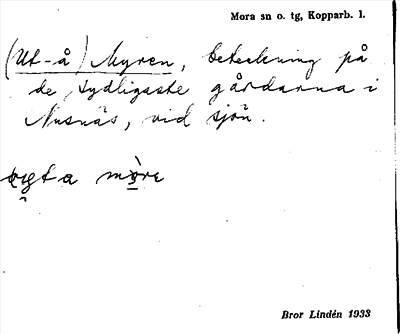 Mora sn o. tg, Kopparb. l.
(Ut-å) Myren, beteckning på
de sydligaste gårdarna i
Nusnäs, vid sjön.
Bror Lindén 1933